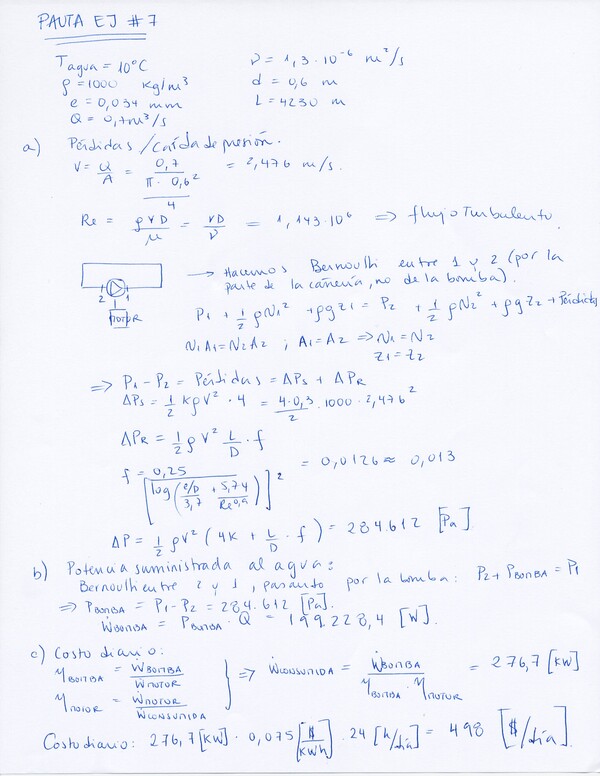 PAUTA EJ #7
Tagua = 10°C
ν = 1,3·10⁻⁶ m²/s
ρ = 1000 kg/m³
d = 0,6 m
e = 0,034 mm
L = 4230 m
Q = 0,7 m³/s
a) Pérdidas / caída de presión.
V = Q/A = 0,7 / (π · 0,6²/4) = 2,476 m/s.
Re = ρVD/μ = VD/ν = 1,143·10⁶ ⇒ flujo Turbulento.
→ Hacemos Bernoulli entre 1 y 2 (por la
parte de la cañería, no de la bomba).
2 1
MOTOR
P1 + 1/2 ρV1² + ρgz1 = P2 + 1/2 ρV2² + ρgz2 + Pérdidas
V1A1 = V2A2 ; A1 = A2 ⇒ V1 = V2
z1 = z2
⇒ P1 - P2 = Pérdidas = ΔPs + ΔPR
ΔPs = 1/2 kρV² · 4 = 4·0,3/2 · 1000 · 2,476²
ΔPR = 1/2 ρV² L/D · f
f = 0,25 / [log((e/D)/3,7 + 5,74/Re^0,9)]² = 0,0126 ≈ 0,013
ΔP = 1/2 ρV² (4k + L/D · f) = 284.612 [Pa].
b) Potencia suministrada al agua:
Bernoulli entre 2 y 1, pasando por la bomba: P2 + PBOMBA = P1
⇒ PBOMBA = P1 - P2 = 284.612 [Pa].
ẆBOMBA = PBOMBA · Q = 199.228,4 [W].
c) Costo diario:
ηBOMBA = ẆBOMBA/ẆMOTOR
ηMOTOR = ẆMOTOR/ẆCONSUMIDA
} ⇒ ẆCONSUMIDA = ẆBOMBA / (ηBOMBA · ηMOTOR) = 276,7 [KW]
Costo diario: 276,7 [KW] · 0,075 [$/KWh] · 24 [h/día] = 498 [$/día].